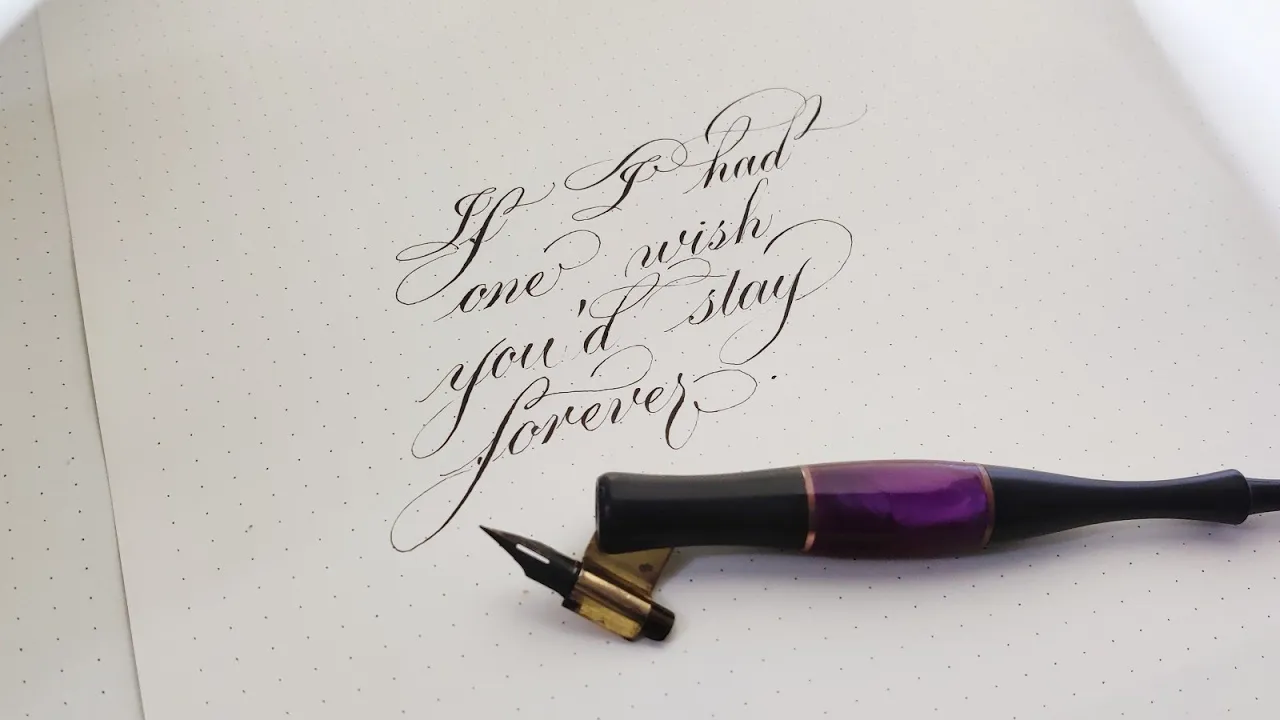 If I had
one wish
you'd stay
forever.